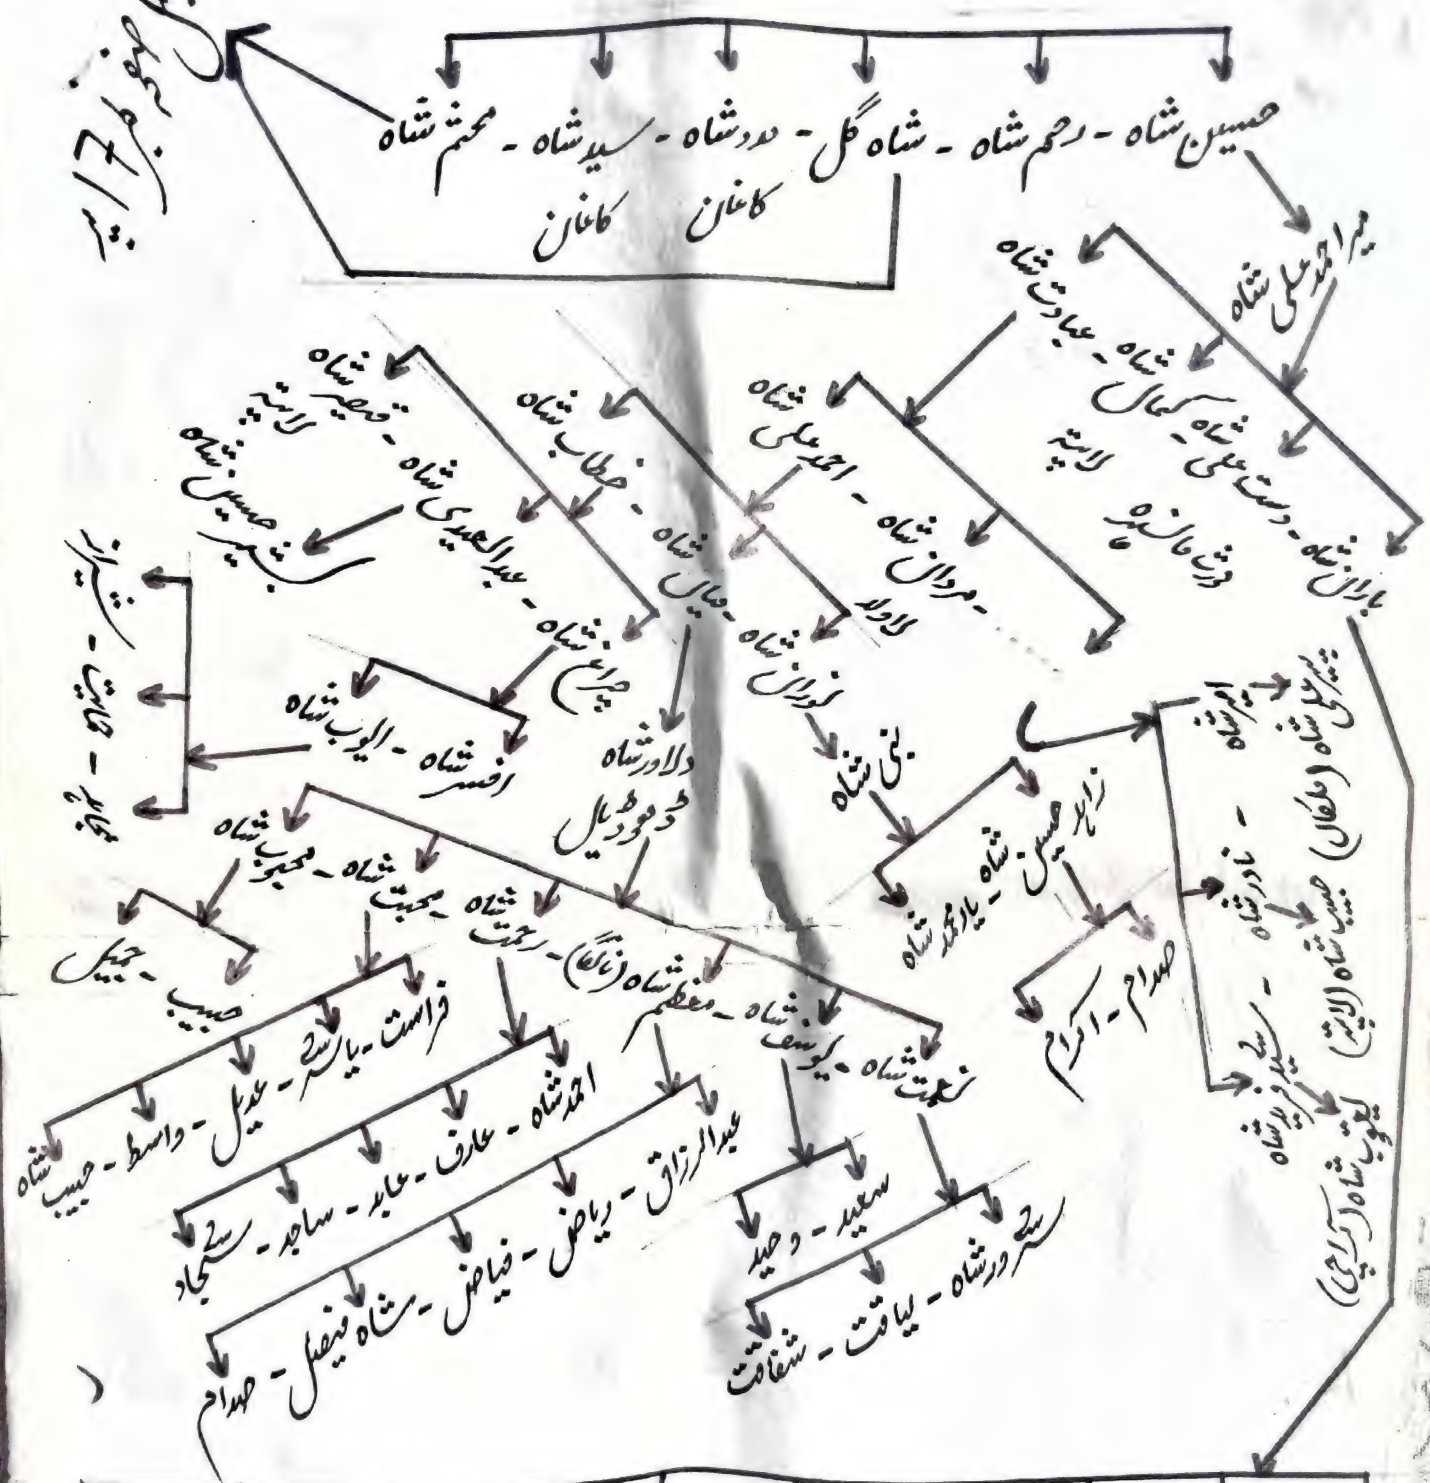 صفحہ نمبر 7/ پر
حسین شاہ - رحم شاہ - شاہ گل - مدد شاہ - سید شاہ - محتم شاہ
کاغان کاغان
میر احمد علی شاہ
باران شاہ - دست علی شاہ - کمال شاہ - عبادت شاہ
لاپتہ
مردان شاہ - احمد علی شاہ
لاولد
نوران شاہ - میاں شاہ - خطاب شاہ
چراغ شاہ - عبدالہدی شاہ - قیصر شاہ
لاپتہ
بشیر حسین شاہ
افسر شاہ - ایوب شاہ
شیراز
دلاور شاہ
نبی شاہ
زاہد حسین شاہ - یار محمد شاہ
صدام - اکرام
امیر شاہ - نادر شاہ - سید فرید شاہ
پیر علی شاہ (ملکال) حبیب شاہ (لاپتہ) یعقوب شاہ (کراچی)
نعمت شاہ - یوسف شاہ - معظم شاہ - رحمت شاہ - محبت شاہ - محبوب شاہ
حبیب - جمیل
فراست - یاسر - عدیل - واسط - حبیب شاہ
احمد شاہ - عارف - عابد - ساجد - سجاد
عبدالرزاق - ریاض - فیاض - شاہ فیصل - صدام
سعید - وحید
سرور شاہ - لیاقت - شفاقت